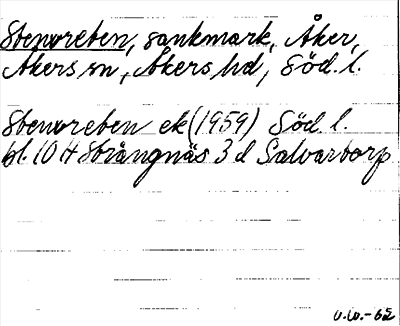 Stenvreten, sankmark, Åker,
Åkers sn, Åkers hd, Söd. l.
Stenvreten ek (1959) Söd. l.
bl. 10 H Strängnäs 3 d Salvartorp